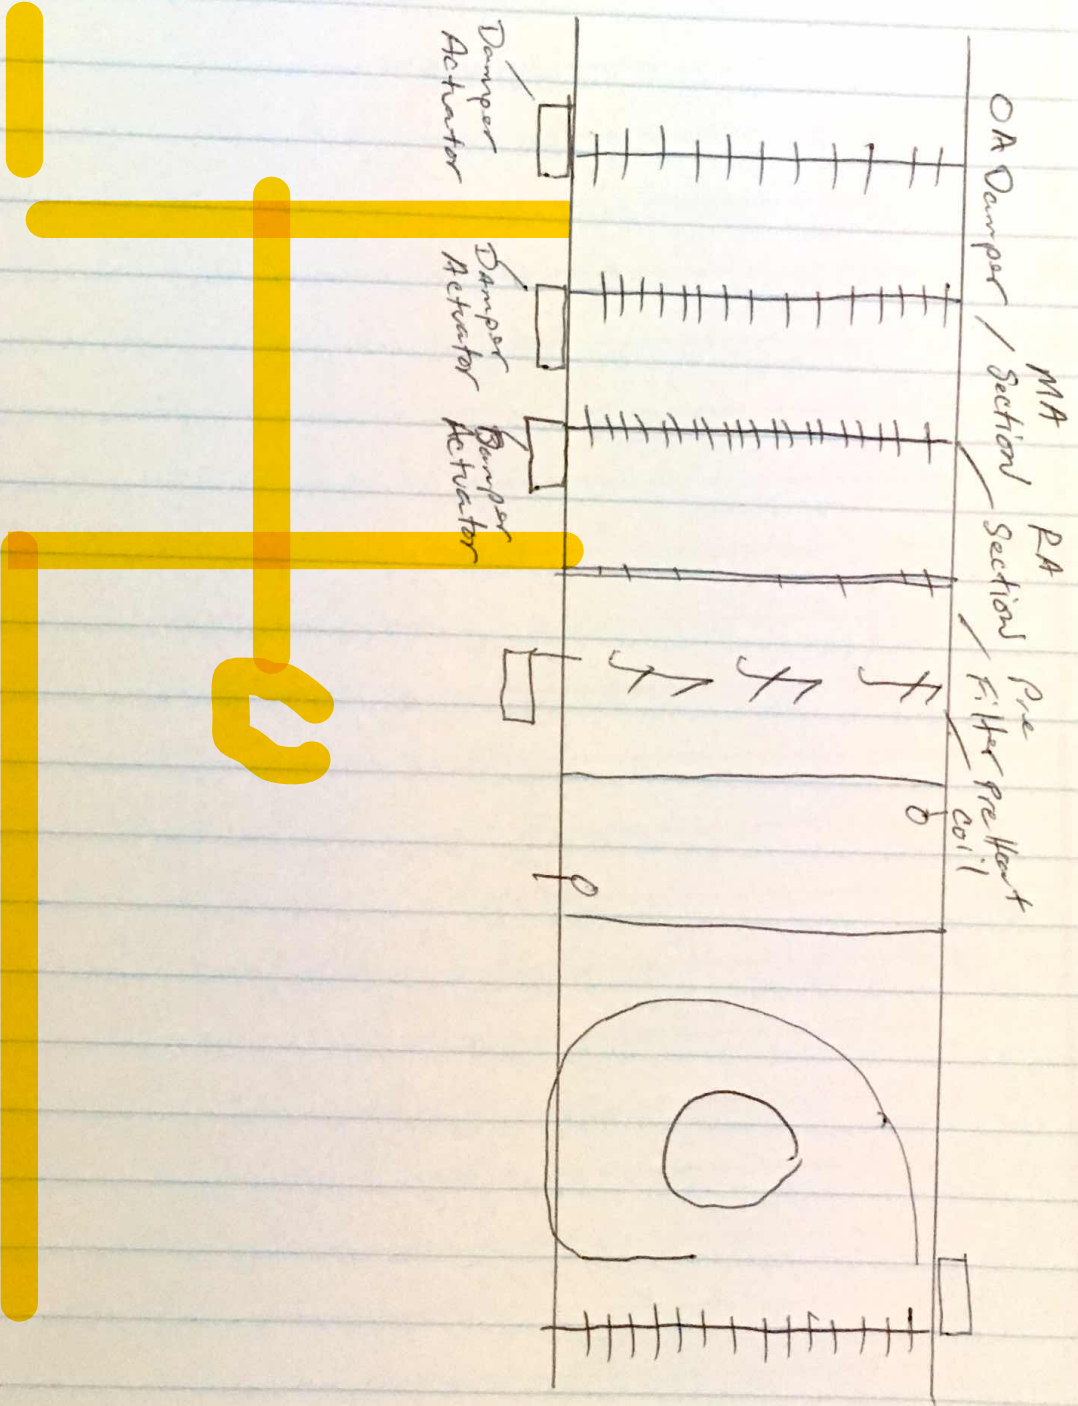 OA Damper / MA Section RA Section Pre Filter Pre Heat coil
Damper
Actuator
DAmper
Actuator
Damper
Actuator